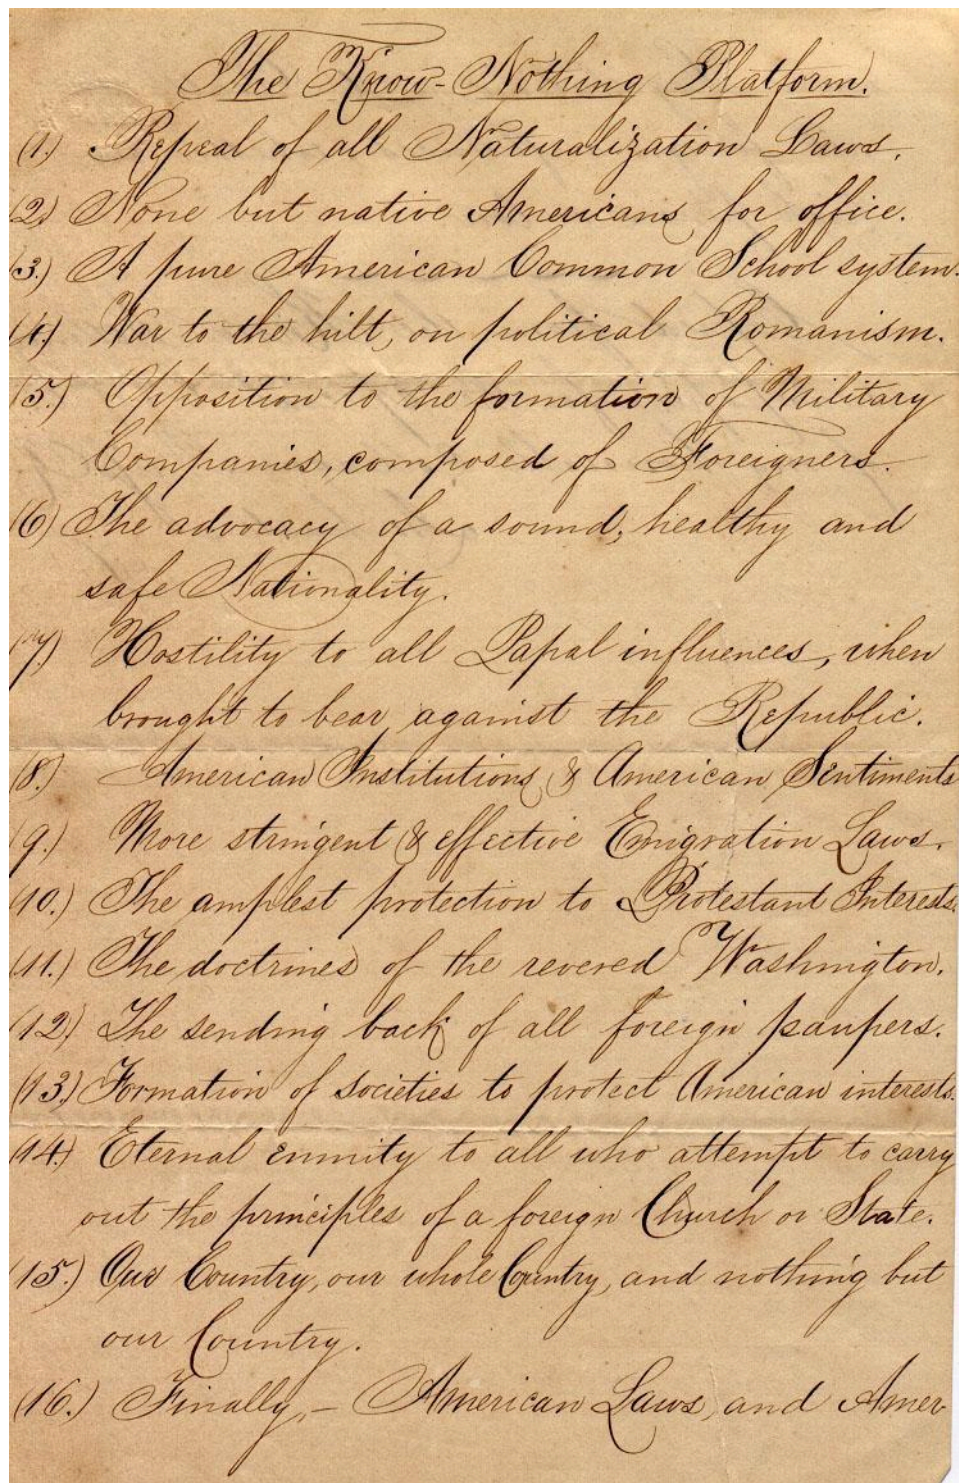 The Know-Nothing Platform.
(1.) Repeal of all Naturalization Laws.
(2.) None but native Americans for office.
(3.) A pure American Common School system.
(4.) War to the hilt, on political Romanism.
(5.) Opposition to the formation of Military
Companies, composed of Foreigners.
(6) The advocacy of a sound, healthy and
safe Nationality.
(7.) Hostility to all Papal influences, when
brought to bear against the Republic.
(8.) American Institutions & American Sentiments
(9.) More stringent & effective Emigration Laws.
(10.) The amplest protection to Protestant Interests.
(11.) The doctrines of the revered Washington.
(12.) The sending back of all foreign paupers.
(13.) Formation of societies to protect American interests.
(14.) Eternal enmity to all who attempt to carry
out the principles of a foreign Church or State.
(15.) Our Country, our whole Country, and nothing but
our Country.
(16.) Finally,- American Laws, and Amer